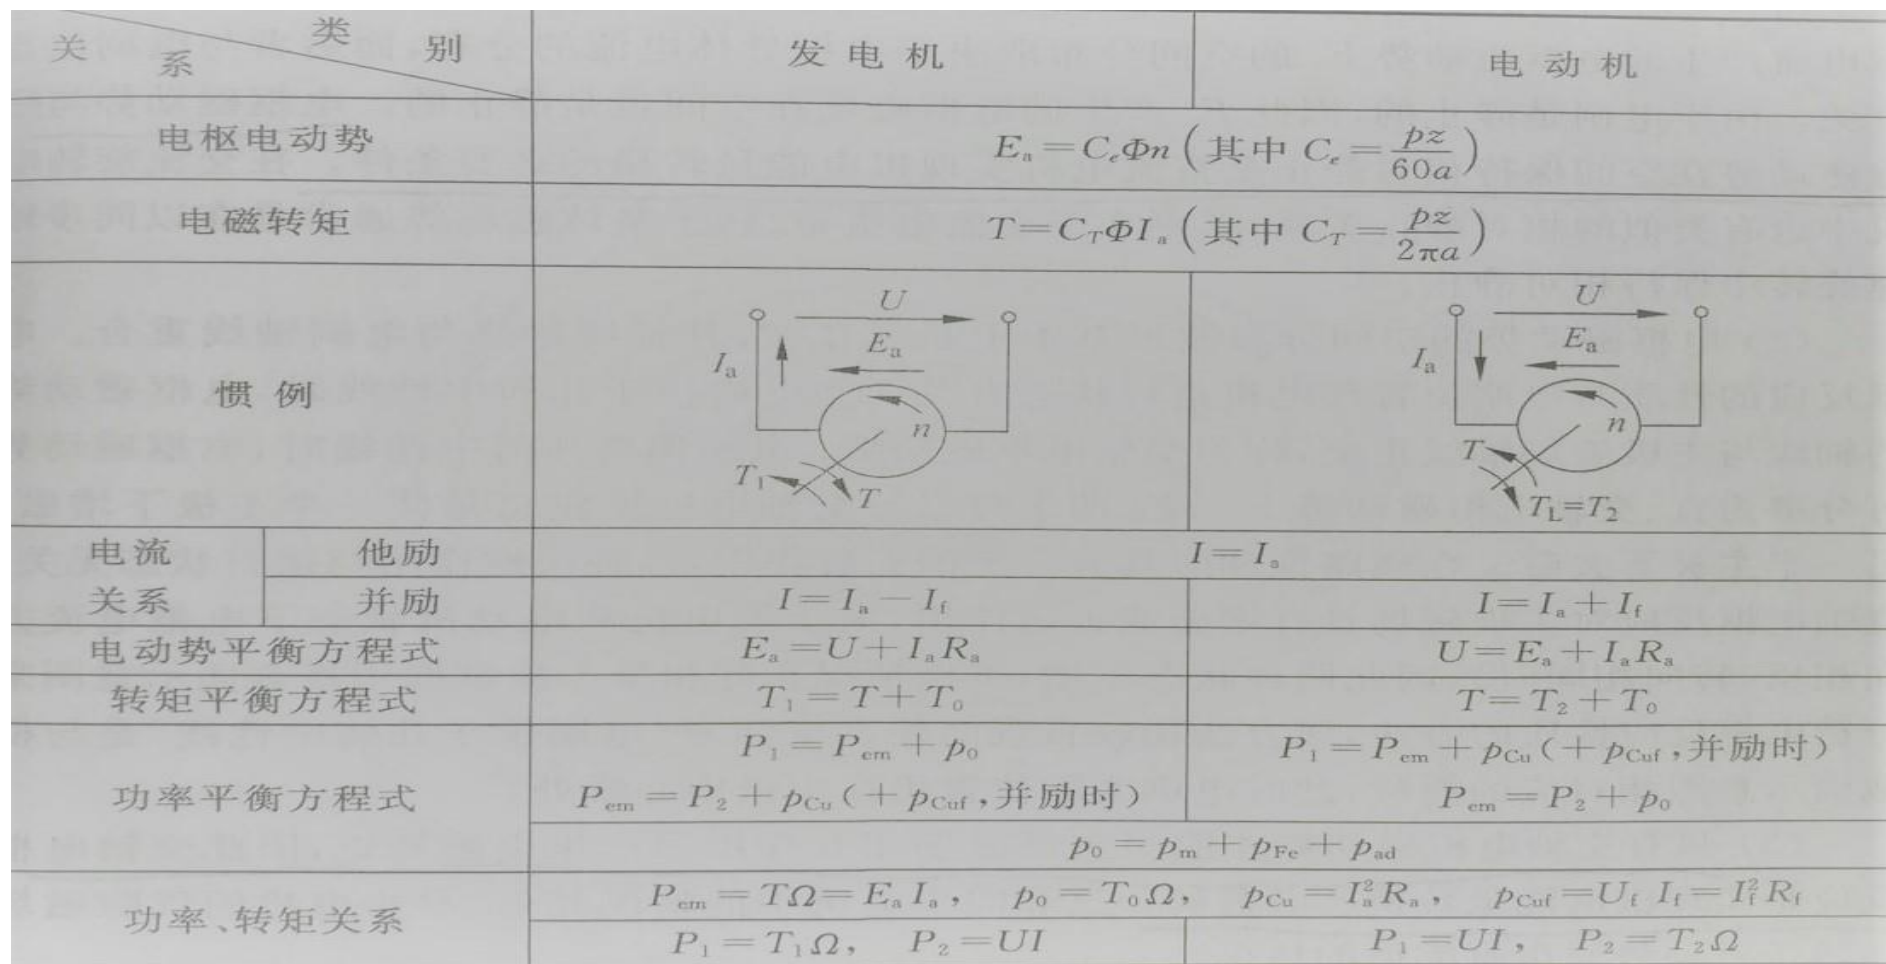 关系 类别 发电机 电动机
电枢电动势 Eₐ=CₑΦn(其中 Cₑ=pz/60a)
电磁转矩 T=C_TΦIₐ(其中 C_T=pz/2πa)
惯例
U
Eₐ
Iₐ
n
T₁
T
U
Eₐ
Iₐ
n
T
T_L=T₂
电流关系 他励 I=Iₐ
并励 I=Iₐ-I_f I=Iₐ+I_f
电动势平衡方程式 Eₐ=U+IₐRₐ U=Eₐ+IₐRₐ
转矩平衡方程式 T₁=T+T₀ T=T₂+T₀
功率平衡方程式
P₁=P_em+p₀ P₁=P_em+p_Cu(+p_Cuf,并励时)
P_em=P₂+p_Cu(+p_Cuf,并励时) P_em=P₂+p₀
p₀=p_m+p_Fe+p_ad
功率、转矩关系
P_em=TΩ=EₐIₐ, p₀=T₀Ω, p_Cu=Iₐ²Rₐ, p_Cuf=U_f I_f=I_f²R_f
P₁=T₁Ω, P₂=UI P₁=UI, P₂=T₂Ω